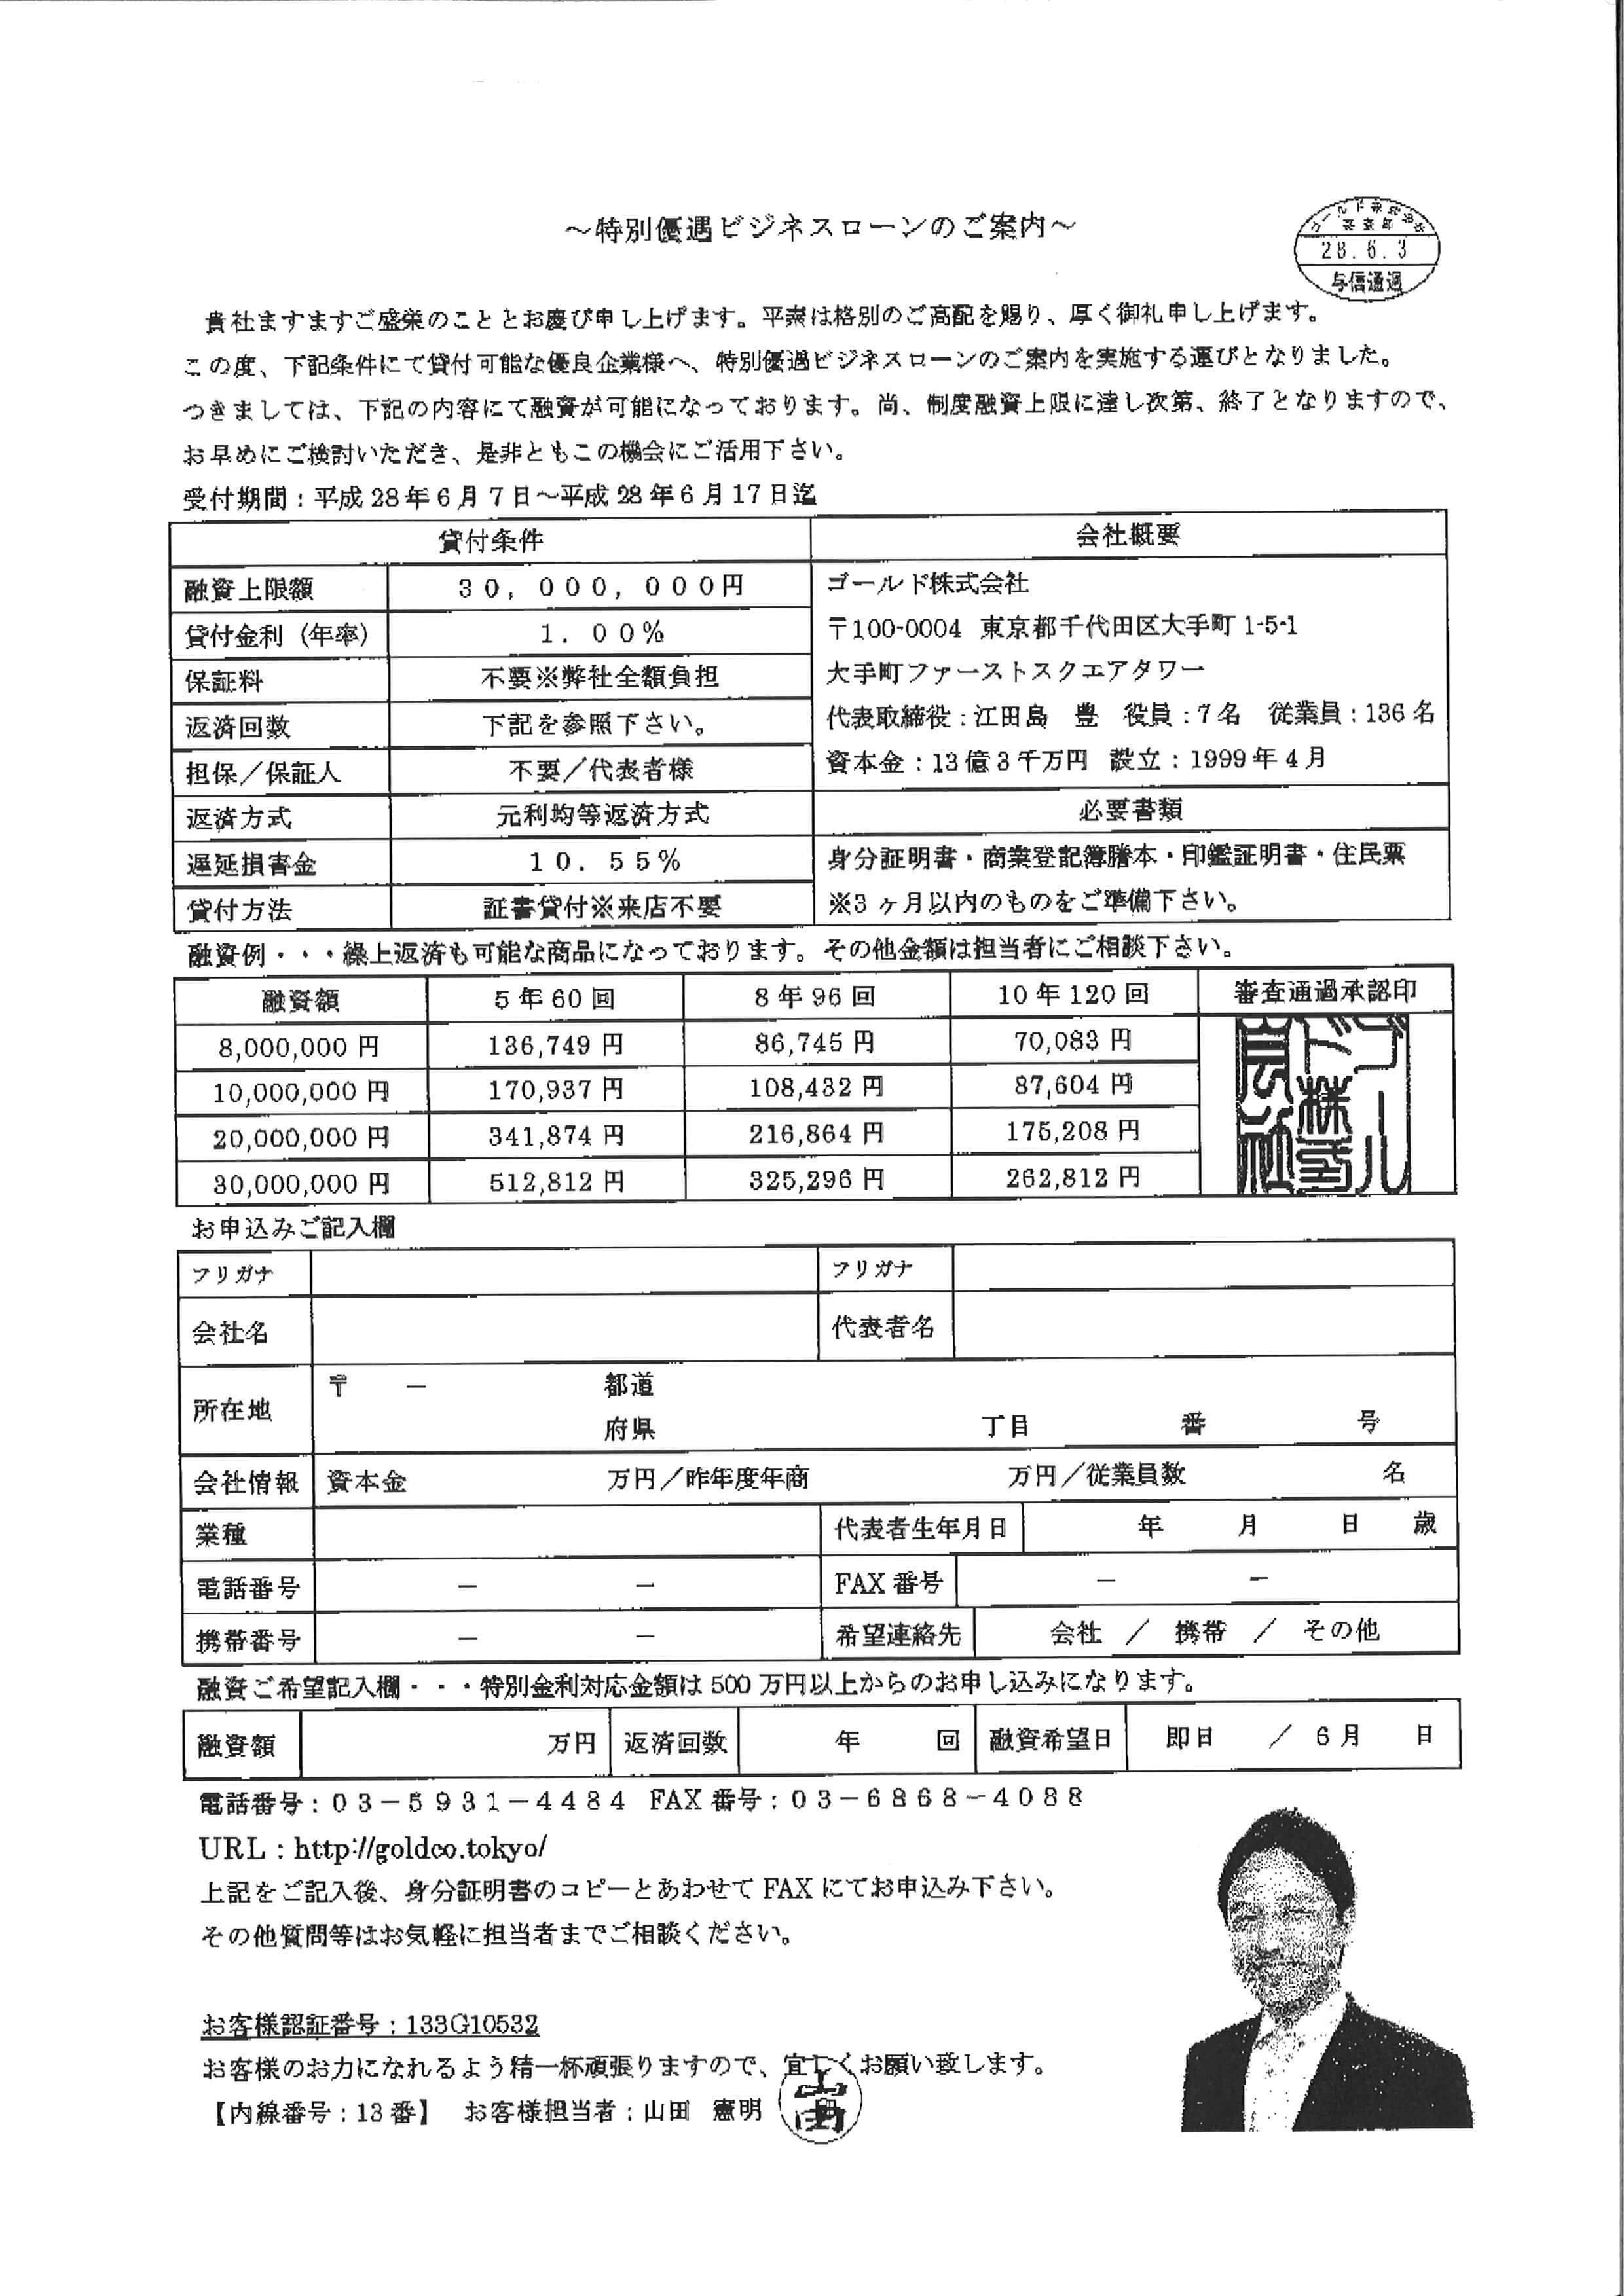 ～特別優遇ビジネスローンのご案内～
ゴールド株式会社
審査部
28.6.3
与信通過
貴社ますますご盛栄のこととお慶び申し上げます。平素は格別のご高配を賜り、厚く御礼申し上げます。
この度、下記条件にて貸付可能な優良企業様へ、特別優遇ビジネスローンのご案内を実施する運びとなりました。
つきましては、下記の内容にて融資が可能になっております。尚、制度融資上限に達し次第、終了となりますので、
お早めにご検討いただき、是非ともこの機会にご活用下さい。
受付期間：平成28年6月7日～平成28年6月17日迄
貸付条件 会社概要
融資上限額 ３０，０００，０００円
貸付金利（年率） １．００％
保証料 不要※弊社全額負担
返済回数 下記を参照下さい。
担保／保証人 不要／代表者様
返済方式 元利均等返済方式
遅延損害金 １０．５５％
貸付方法 証書貸付※来店不要
ゴールド株式会社
〒100-0004 東京都千代田区大手町1-5-1
大手町ファーストスクエアタワー
代表取締役：江田島 豊 役員：7名 従業員：136名
資本金：13億3千万円 設立：1999年4月
必要書類
身分証明書・商業登記簿謄本・印鑑証明書・住民票
※3ヶ月以内のものをご準備下さい。
融資例・・・繰上返済も可能な商品になっております。その他金額は担当者にご相談下さい。
融資額 5年60回 8年96回 10年120回 審査通過承認印
8,000,000円 136,749円 86,745円 70,083円
10,000,000円 170,937円 108,432円 87,604円
20,000,000円 341,874円 216,864円 175,208円
30,000,000円 512,812円 325,296円 262,812円
ゴールド株式会社
お申込みご記入欄
フリガナ フリガナ
会社名 代表者名
所在地 〒 － 都道
府県 丁目 番 号
会社情報 資本金 万円／昨年度年商 万円／従業員数 名
業種 代表者生年月日 年 月 日 歳
電話番号 － － FAX番号 － －
携帯番号 － － 希望連絡先 会社 ／ 携帯 ／ その他
融資ご希望記入欄・・・特別金利対応金額は500万円以上からのお申し込みになります。
融資額 万円 返済回数 年 回 融資希望日 即日 ／ 6月 日
電話番号：０３－５９３１－４４８４ FAX番号：０３－６８６８－４０８８
URL：http://goldco.tokyo/
上記をご記入後、身分証明書のコピーとあわせてFAXにてお申込み下さい。
その他質問等はお気軽に担当者までご相談ください。
お客様認証番号：133G10532
お客様のお力になれるよう精一杯頑張りますので、宜しくお願い致します。
【内線番号：13番】 お客様担当者：山田 憲明
山田